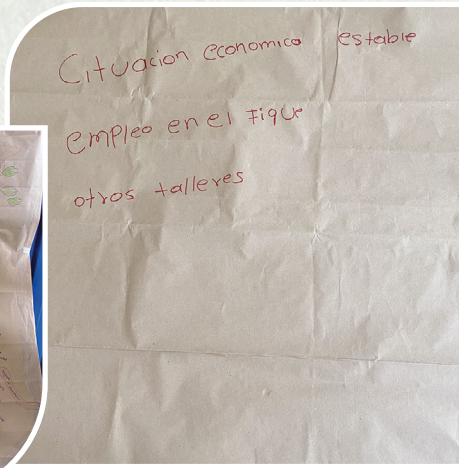 Cituacion economica estable
empleo en el Fique
otros talleres